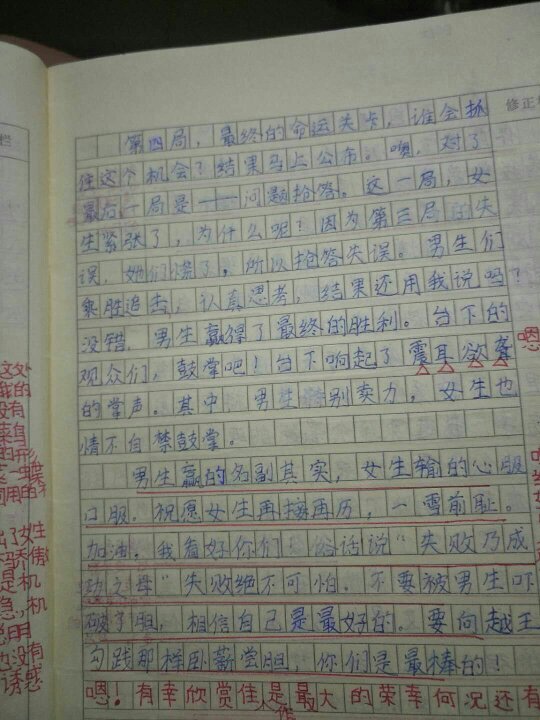 修正
栏
第四局，最终的命运关卡，谁会抓
住这个机会？结果马上公布。噢，对了
最后一局是——问题抢答。这一局，女
生紧张了，为什么呢？因为第三局的失
误，她们慌了，所以抢答失误。男生们
乘胜追击，认真思考，结果还用我说吗？
没错，男生赢得了最终的胜利。台下的
观众们，鼓掌吧！台下响起了震耳欲聋
嗯
的掌声。其中，男生特别卖力，女生也
情不自禁鼓掌。
男生赢的名副其实，女生输的心服
口服。祝愿女生再接再厉，一雪前耻。
加油。我看好你们 俗话说“失败乃成
功之母”失败绝不可怕。不要被男生吓
破了胆，相信自己是最好的。要向越王
勾践那样卧薪尝胆，你们是最棒的！
嗯！有幸欣赏佳作是最大的荣幸何况还有
这处
我的
没有
菜鸟
的形
出了女生
是机
急，机
没有
诱惑